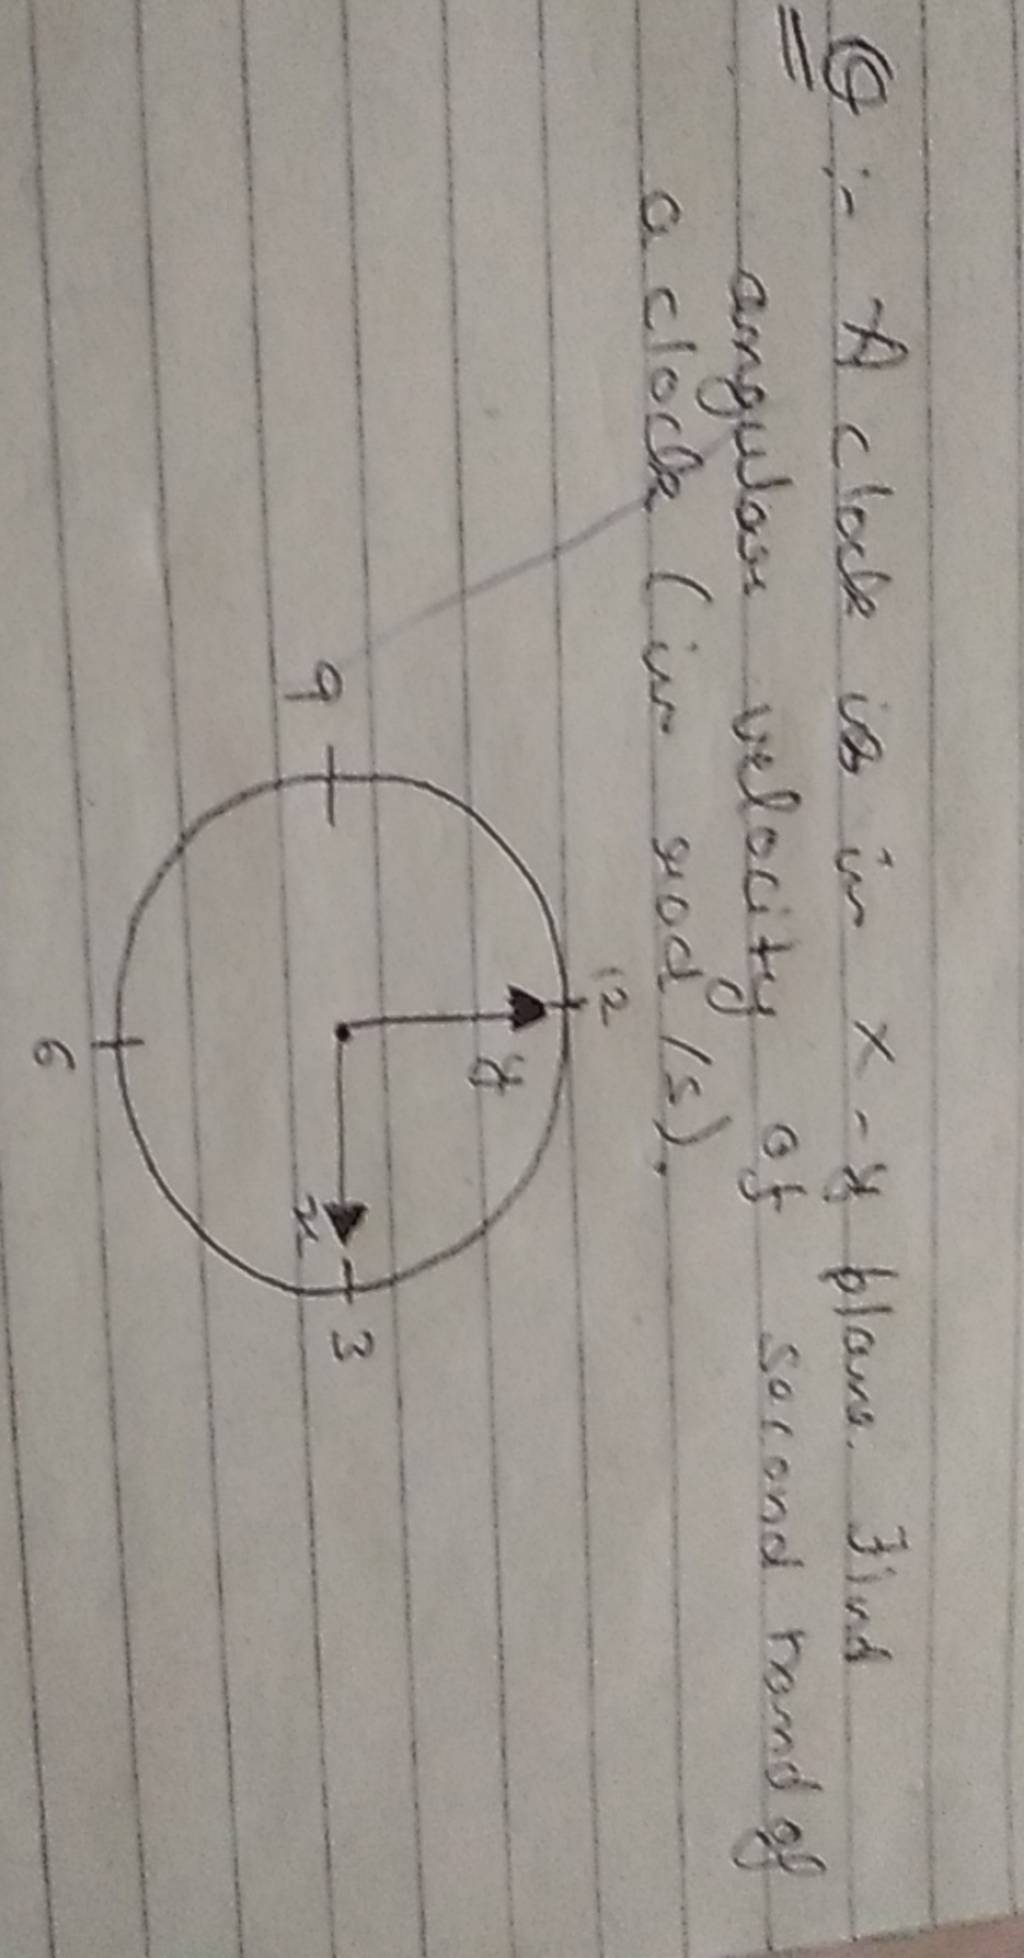 Q :- A clock is in x-y plane. Find
angular velocity of second hand of
a clock (in rad/s).
12
y
9
x
3
6